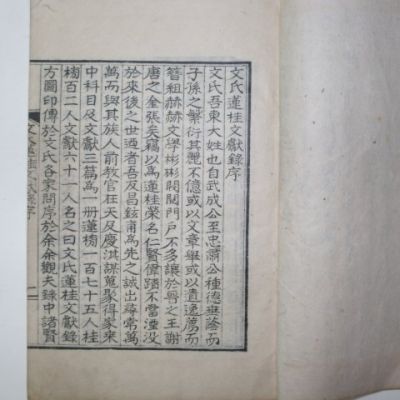 文氏蓮桂文獻錄序
文氏吾東大姓也自武成公至忠肅公種德垂蔭而
子孫之繁衍其麗不億或以文章擧或以遺逸薦而
簪組赫赫文學彬彬閥閱門戶不多讓於晋之王謝
唐之金張矣竊以爲蓮桂榮名仁賢偉蹟不當湮沒
於來後之世過者吾友昌鉉甫爲先之誠出尋常萬
萬而與其族人前敎官在天及慶淇謀蒐聚得家來
中科目及文獻三篇爲一冊蓮榜一百七十五人桂
榜百二人文獻六十一人名之曰文氏蓮桂文獻錄
方圖印傳於文氏各家問序於余余觀夫錄中諸賢
文氏蓮桂文獻錄序